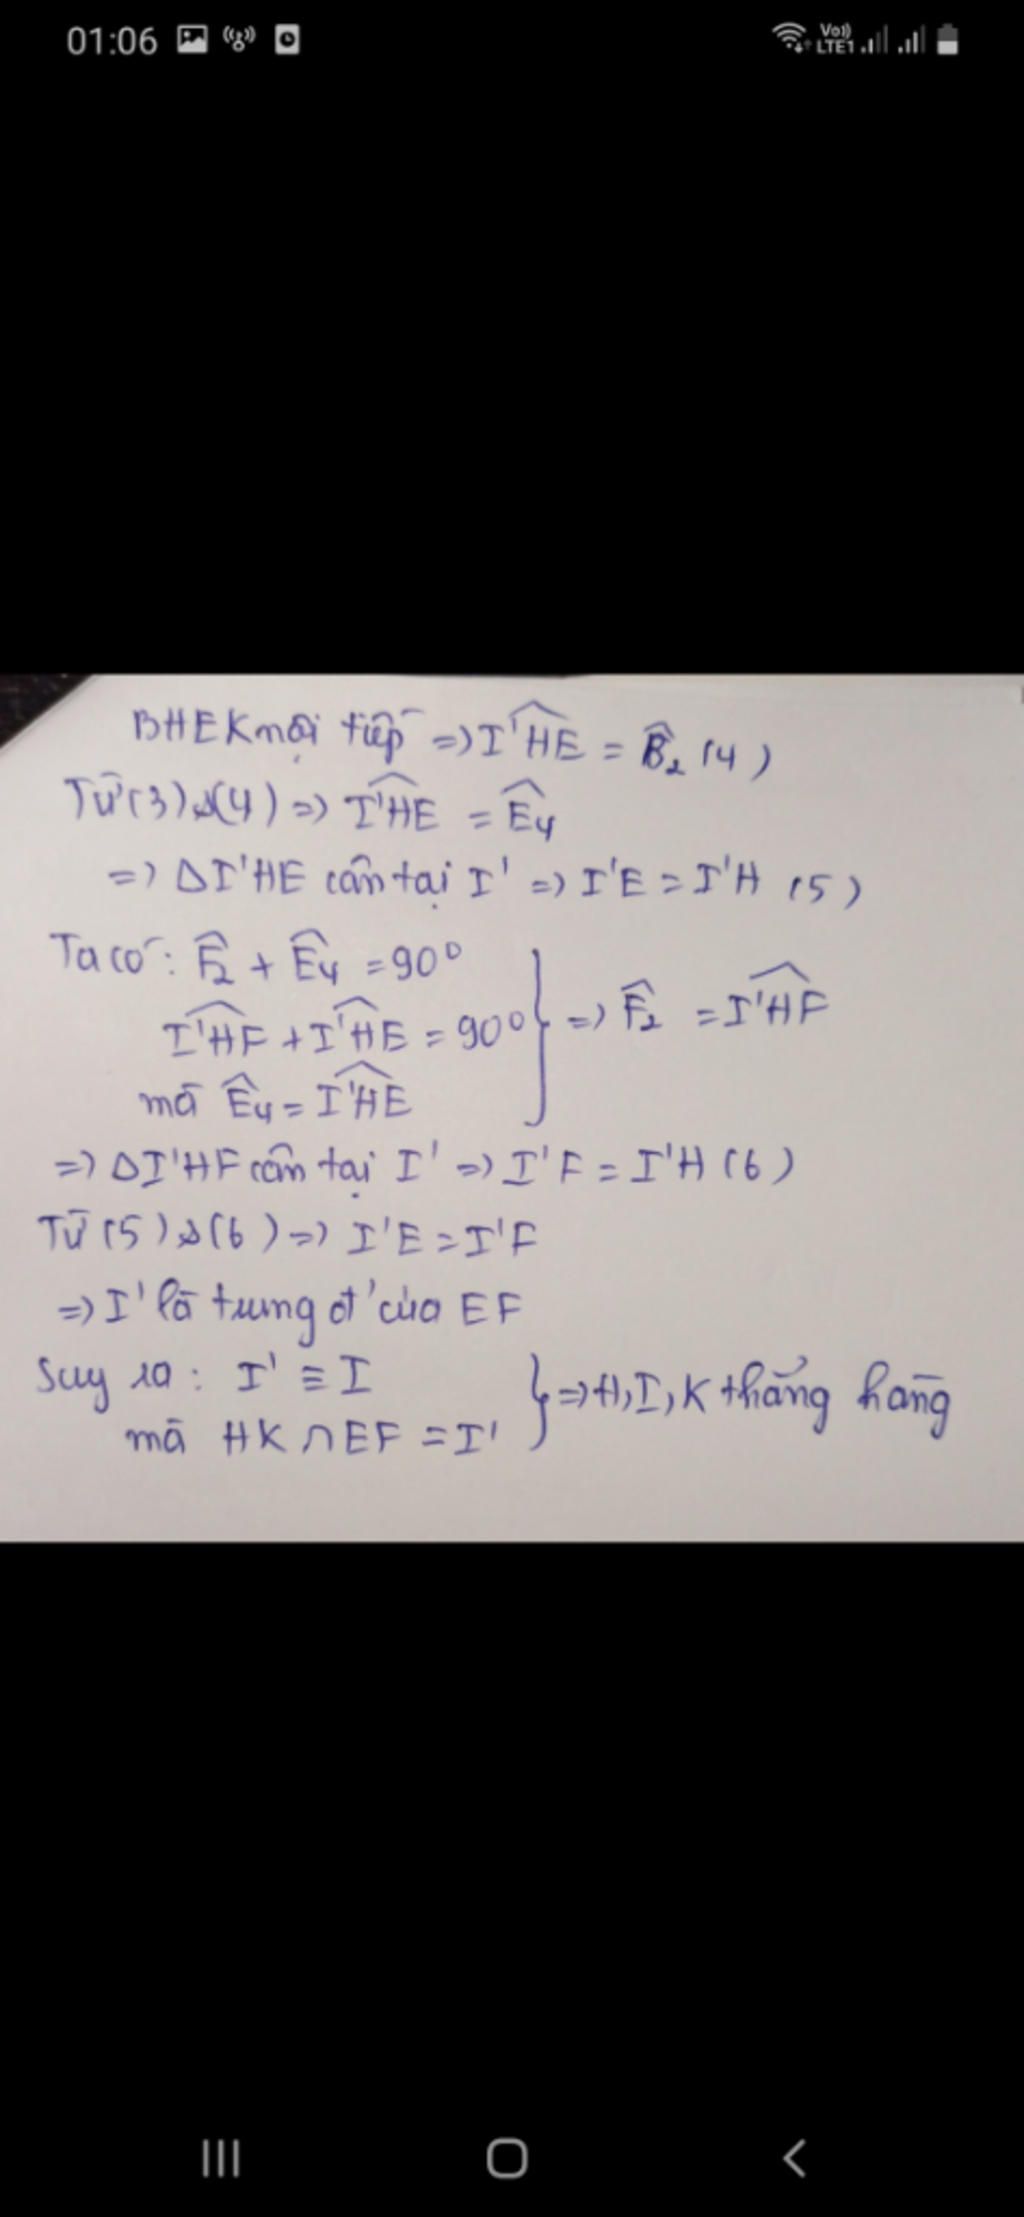 01:06 Vo)) LTE1
BHEK nội tiếp => I'HE = B̂₂ (4)
Từ (3) & (4) => I'HE = Ê₄
=> ΔI'HE cân tại I' => I'E = I'H (5)
Ta có: F̂₂ + Ê₄ = 90°
I'HF + I'HE = 90° } => F̂₂ = I'HF
mà Ê₄ = I'HE
=> ΔI'HF cân tại I' => I'F = I'H (6)
Từ (5) & (6) => I'E = I'F
=> I' là trung đ' của EF
Suy ra: I' ≡ I } => H, I, K thẳng hàng
mà HK ∩ EF = I'